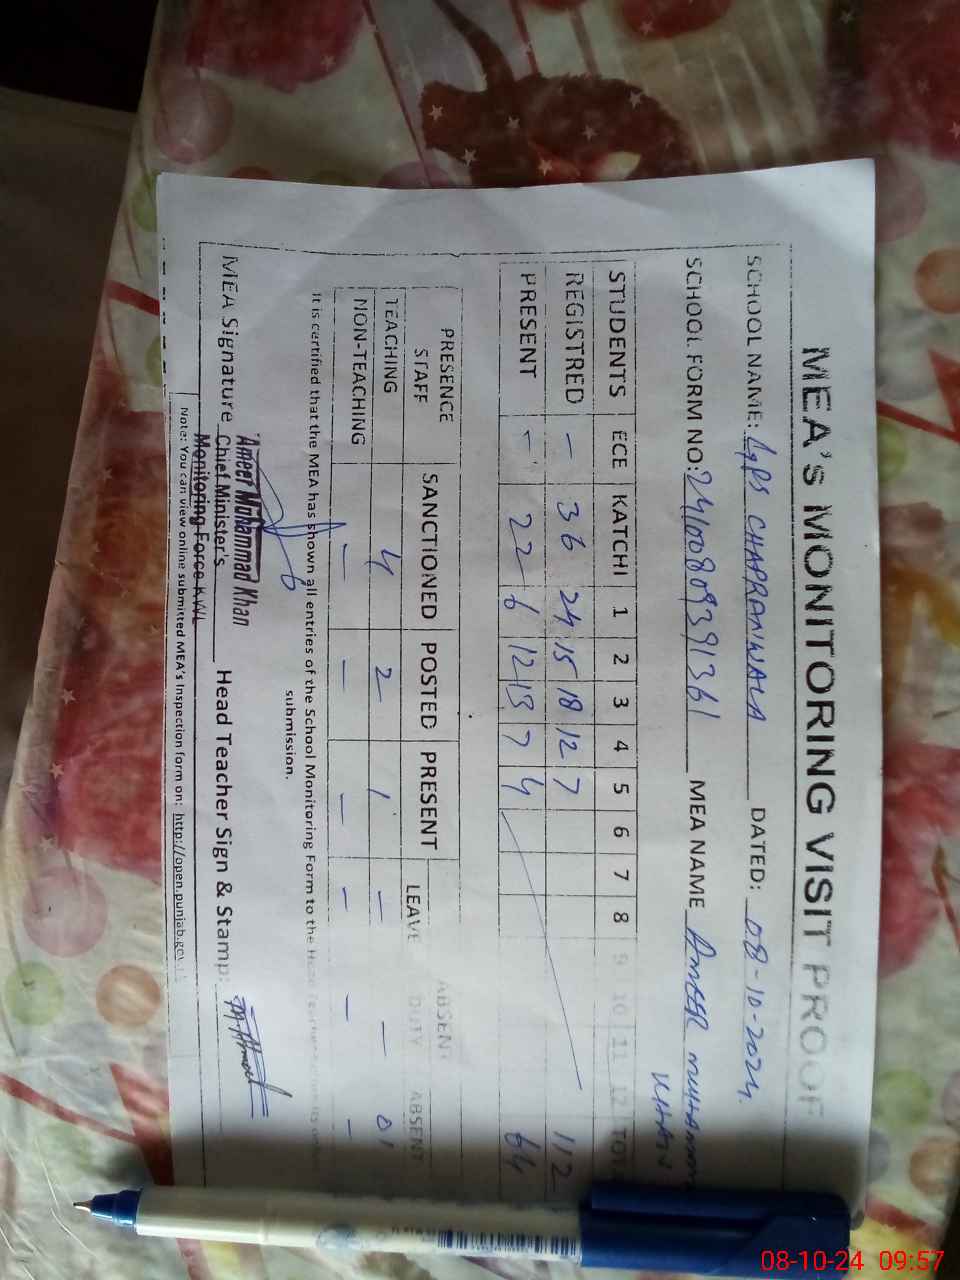 MEA's MONITORING VISIT PROOF
SCHOOL NAME: GGPS CHAPRANWALA DATED: 08-10-2024.
SCHOOL FORM NO: MEA NAME AMEER MUHAMMAD
KHAN
STUDENTS ECE KATCHI 1 2 3 4 5 6 7 8 9 10 11 12 TOTAL
REGISTRED - 36 24 15 18 12 7 112
PRESENT - 22 6 12 13 7 4 64
PRESENCE ABSENT
STAFF SANCTIONED POSTED PRESENT LEAVE DUTY ABSENT
TEACHING 4 2 1 - - 01
NON-TEACHING - - - - - -
It is certified that the MEA has shown all entries of the School Monitoring Form to the Head Teacher
submission.
MEA Signature Head Teacher Sign & Stamp:
Ameer Muhammad Khan
Chief Minister's
Monitoring Force KWL
Note: You can view online submitted MEA's Inspection form on: http://open.punjab.gov.
08-10-24 09:57